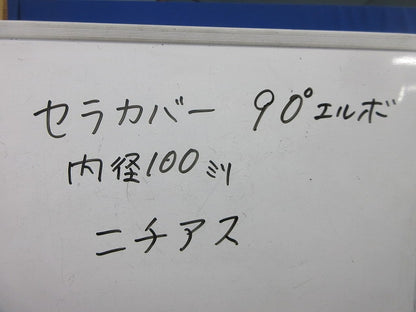 セラカバー 90°エルボ
内径100ミリ
ニチアス